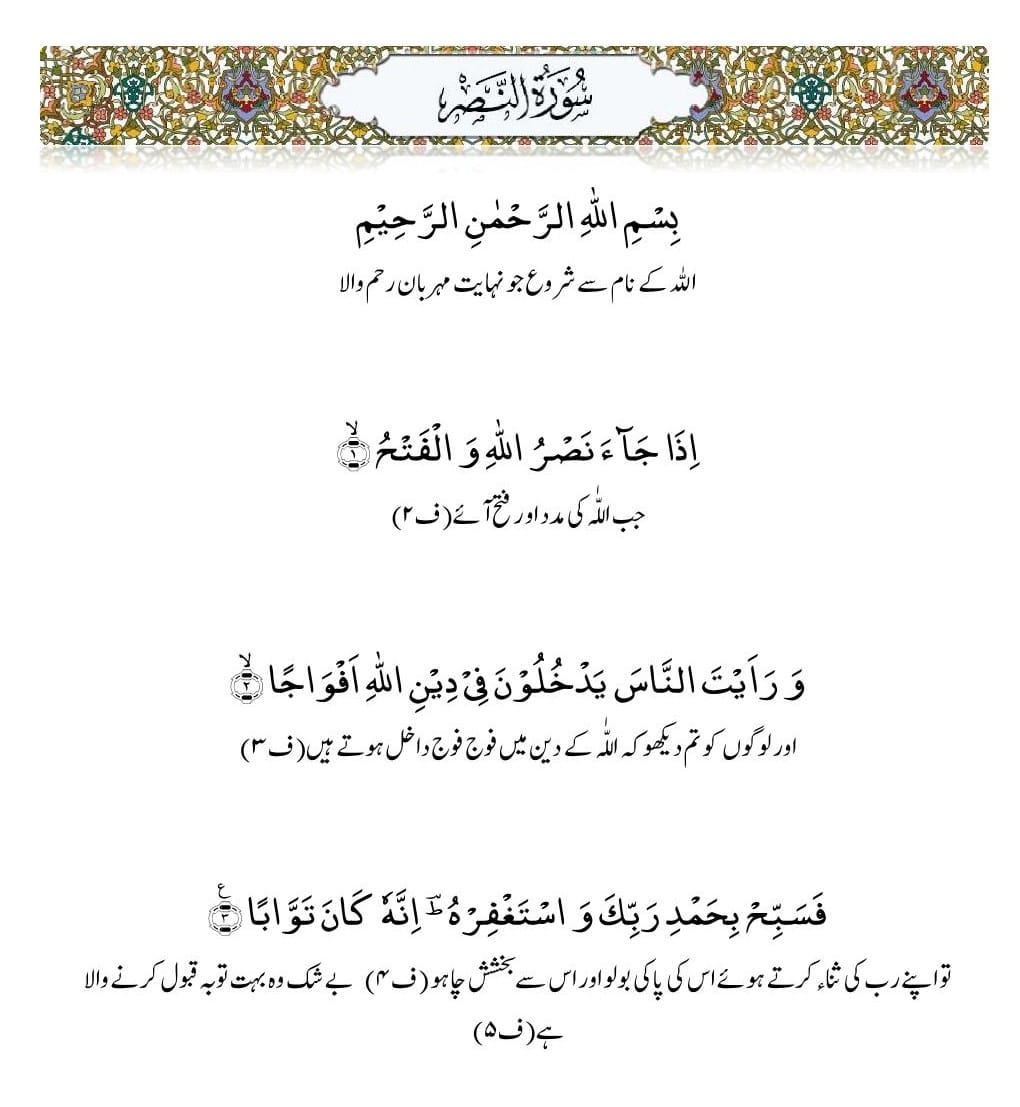 سُوْرَةُ النَّصْرِ
بِسْمِ اللّٰهِ الرَّحْمٰنِ الرَّحِیْمِ
اللہ کے نام سے شروع جو نہایت مہربان رحم والا
اِذَا جَآءَ نَصْرُ اللّٰهِ وَ الْفَتْحُۙ۝۱
جب اللّٰہ کی مدد اور فتح آئے(ف۲)
وَ رَاَیْتَ النَّاسَ یَدْخُلُوْنَ فِیْ دِیْنِ اللّٰهِ اَفْوَاجًاۙ۝۲
اور لوگوں کو تم دیکھو کہ اللّٰہ کے دین میں فوج فوج داخل ہوتے ہیں(ف۳)
فَسَبِّحْ بِحَمْدِ رَبِّكَ وَ اسْتَغْفِرْهُ ﳳ اِنَّهٗ كَانَ تَوَّابًا۠۝۳
تو اپنے رب کی ثناء کرتے ہوئے اس کی پاکی بولو اور اس سے بخشش چاہو(ف۴) بے شک وہ بہت توبہ قبول کرنے والا
ہے(ف۵)